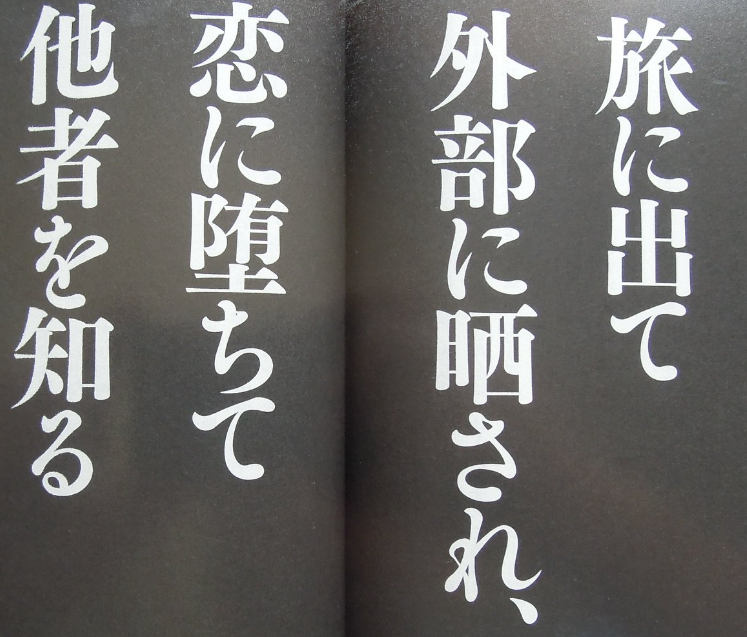 旅に出て
外部に晒され、
恋に堕ちて
他者を知る